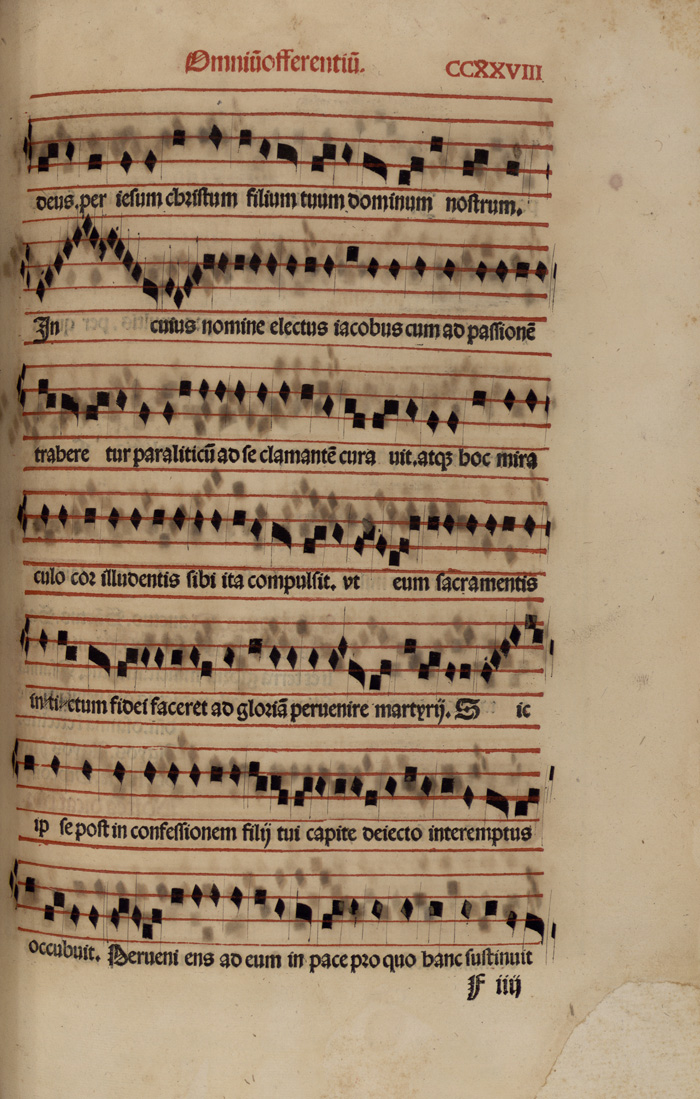 Omniūofferentiū.
CCXXVIII
deus. per iesum christum filium tuum dominum nostrum.
In cuius nomine electus iacobus cum ad passionē
trahere tur paraliticū ad se clamantē cura uit. atqꝫ hoc mira
culo cor illudentis sibi ita compulsit. vt eum sacramentis
in ti ctum fidei faceret ad gloriā peruenire martyrij. S ic
ip se post in confessionem filij tui capite deiecto interemptus
occubuit. Perueni ens ad eum in pace pro quo hanc sustinuit
F iiij